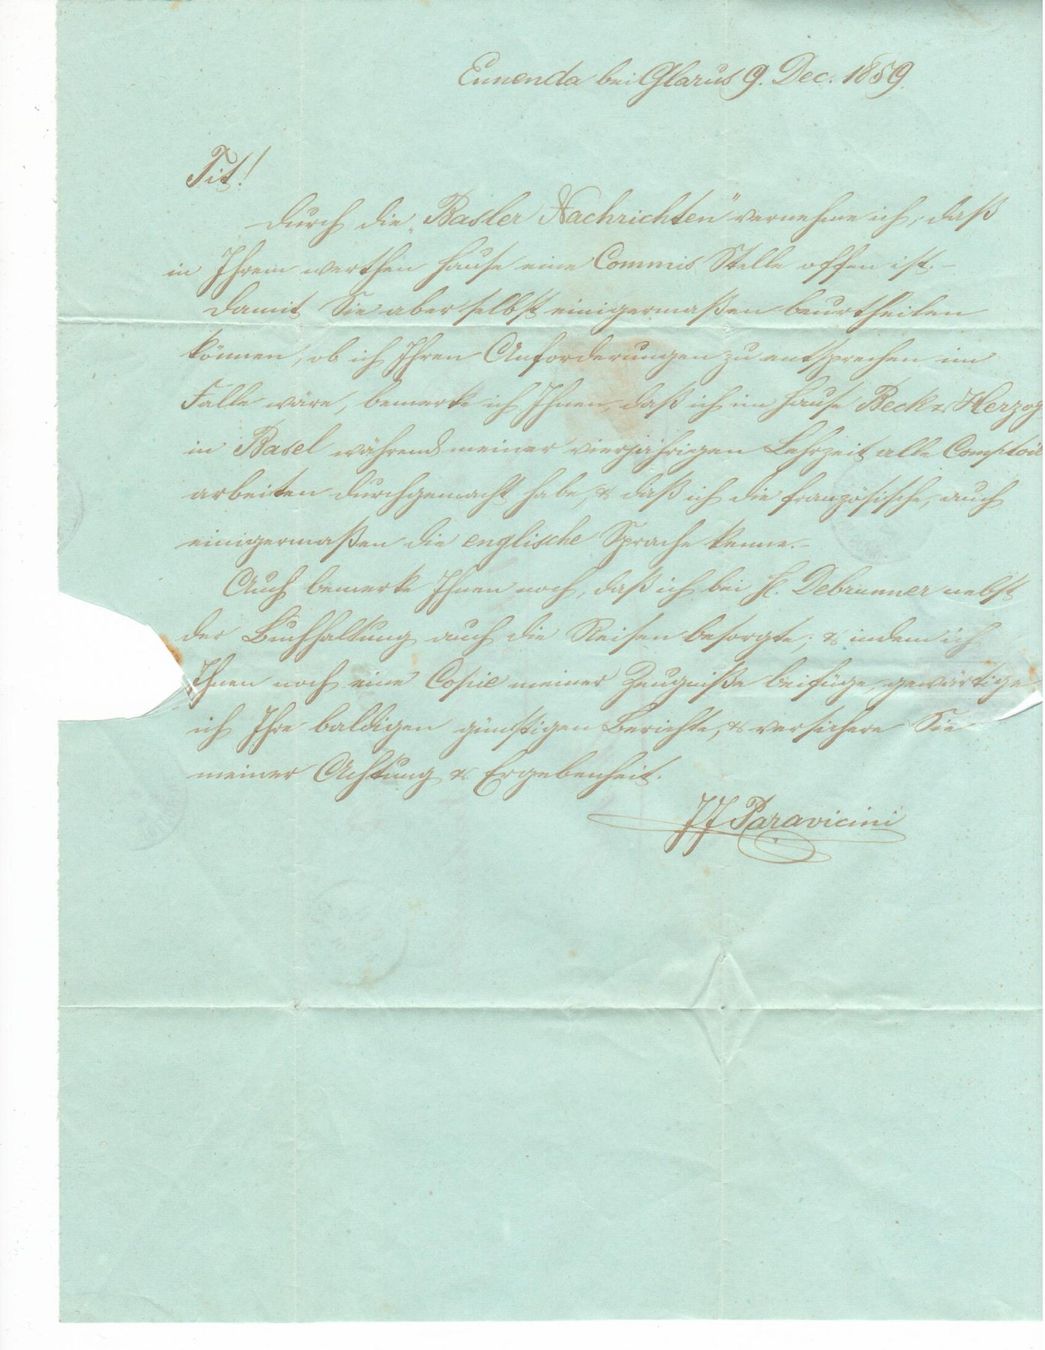 Ennenda bei Glarus 9. Dec. 1859.
Tit!
Durch die „Basler Nachrichten" vernehme ich, daß
in Ihrem werthen Hause eine Commis Stelle offen ist. –
Damit Sie aber selbst einigermaßen beurtheilen
können, ob ich Ihren Anforderungen zu entsprechen im
Falle wäre, bemerke ich Ihnen, daß ich im Hause Beck & Herzog
in Basel während meiner vierjährigen Lehrzeit alle Comptoir
arbeiten durchgemacht habe, & daß ich die französische, auch
einigermaßen die englische Sprache kenne. –
Auch bemerke Ihnen noch, daß ich bei H. Debrunner nebst
der Buchhaltung auch die Reisen besorgte; & indem ich
Ihnen noch eine Copie meiner Zeugniße beifüge, gewärtige
ich Ihre baldigen günstigen Berichte, & versichere Sie
meiner Achtung & Ergebenheit.
JJ Paravicini